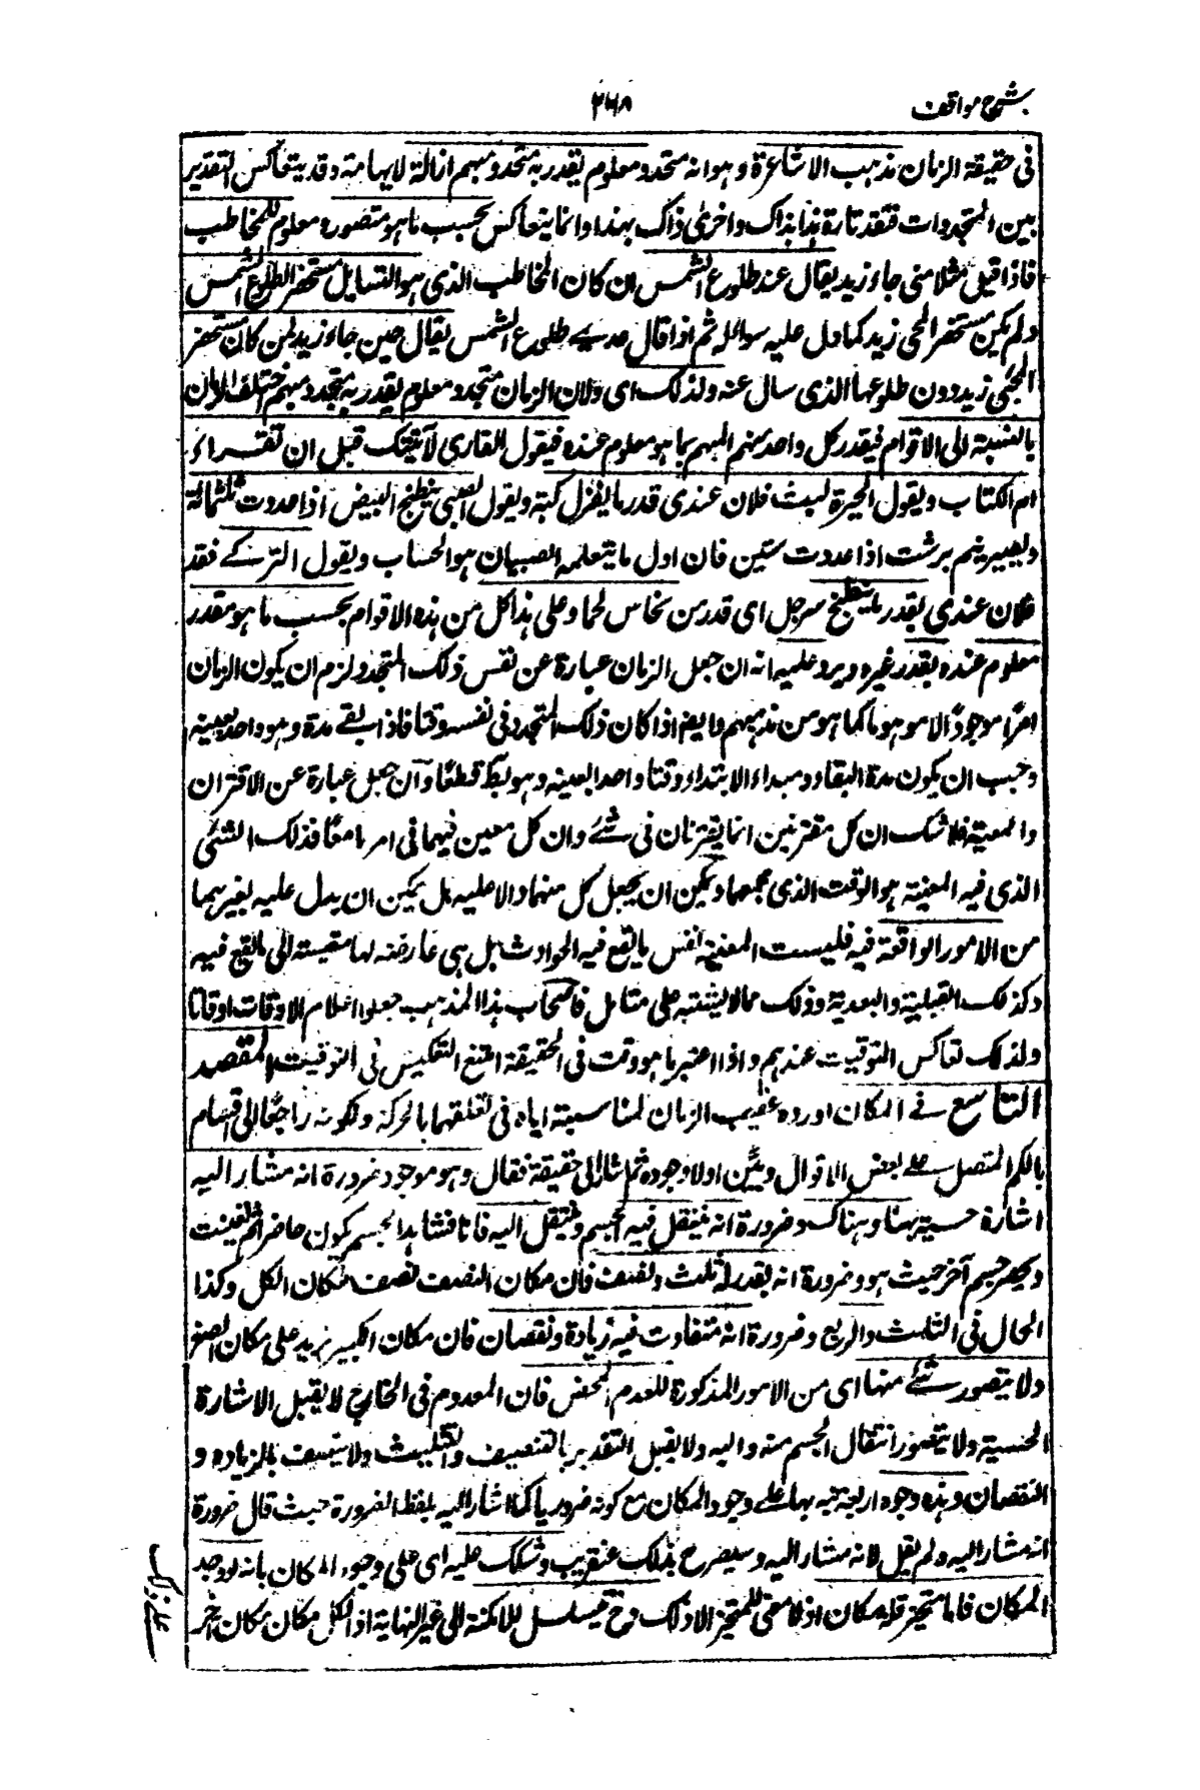 شرح مواقف
٢٦٨
فى حقيقة الزمان مذهب الاشاعرة وهو انه متجدد معلوم يقدر به متجدد مبهم ازالة لابهامه وقد يتعاكس التقدير
بين المتجددات فيقدر تارة هذا بذاك واخرى ذاك بهذا وانما يتعاكس بحسب ما هو متصور ومعلوم للمخاطب
فاذا قيل مثلا متى جاء زيد يقال عند طلوع الشمس ان كان المخاطب الذى هو السايل مستحضرا لطلوع الشمس
ولم يكن مستحضرا لمجى زيد كما دل عليه سواله ثم اذا قال متى طلوع الشمس يقال حين جاء زيد لمن كان مستحضرا
لمجئ زيد دون طلوعها الذى سال عنه ولذلك اى ولان الزمان متجدد معلوم يقدر به متجدد مبهم اختلف الزمان
بالنسبة الى الاقوام فيقدر كل واحد منهم المبهم بما هو معلوم عنده فيقول القارى لآتينك قبل ان تقراء
ام الكتاب ويقول المرءة لبث فلان عندى قدر ما يغزل كبة ويقول الصبى ينطبخ البيض اذا عددت ثلثمائة
ويصير نيم برشت اذا عددت ستين فان اول ما يتعلمه الصبيان هو الحساب ويقول التركى قعد
فلان عندى بقدر ما ينطبخ مرجل اى قدر من نحاس لحما وعلى هذا كل من هذه الاقوام بحسب ما هو مقدر
معلوم عنده يقدر غيره ويرد عليه انه ان جعل الزمان عبارة عن نفس ذلك المتجدد لزم ان يكون الزمان
امرًا موجودًا لا موهوما كما هو من مذهبهم وايضا اذا كان ذلك المتجدد فى نفسه وقتا فاذا بقى مدة وهو واحد بعينه
وجب ان يكون مدة البقاء ومبداء الابتداء وقتا واحدا بعينه وهو بط قطعًا وان جعل عبارة عن الاقتران
والمعية فلا شك ان كل مقترنين انما يقترنان فى شئ وان كل معين فهما فى امر ما معًا فذلك الشئى
الذى فيه المعية هو الوقت الذى يجمعهما ويمكن ان يجعل كل منهما دالا عليه بل يمكن ان يدل عليه بغيرهما
من الامور الواقعة فيه فليست المعية نفس ما يقع فيه الحوادث بل هى عارضة لها مقيسة الى ما يقع فيه
وكذلك القبلية والبعدية وذلك مما لا يشتبه على متامل فاصحاب هذا المذهب جعلوا اعلام الاوقات اوقاتا
ولذلك تعاكس التوقيت عندهم واذا اعتبر ما هو وقت فى الحقيقة امتنع التعكيس فى التوقيت المقصد
التاسع فى المكان اورده عقيب الزمان لمناسبته اياه فى تعلقهما بالحركة ولكونه راجعًا الى اقسام
بالكم المتصل على بعض الاقوال وبيَّن اولا وجوده ثم اشار الى حقيقته فقال وهو موجود ضرورة انه مشار اليه
اشارة حسية بهنا وهناك وضرورة انه ينتقل فيه الجسم وينتقل اليه فانا نشاهد الجسم يكون حاضرا ثم يغيب
ويحضر جسم آخر حيث هو وضرورة انه يقدر له ثلث ونصف فان مكان النصف نصف مكان الكل وكذا
الحال فى الثلث والربع وضرورة انه متفاوت فيه زيادة ونقصان فان مكان الكبير يزيد على مكان الصغير
ولا يتصور شئ منها اى من الامور المذكورة للعدم المحض فان المعدوم فى الخارج لا يقبل الاشارة
الحسية ولا يتصور انتقال الجسم منه واليه ولا يقبل التقدير بالتنصيف والتثليث ولا يتصف بالزياده و
النقصان وهذه وجوه اربعة نبه بها على وجود المكان مع كونه ضروريا كما اشار اليه بلفظ الضرورة حيث قال ضرورة
انه مشار اليه ولم يقل لانه مشار اليه وسيصرح بذلك عنقريب وشكك عليه اى على وجود المكان بانه لو وجد
المكان فاما متحيز فله مكان اذ لا معنى للمتحيز الا ذلك وح تسلسل للامكنة الى غير النهاية اذ لكل مكان مكان اخر